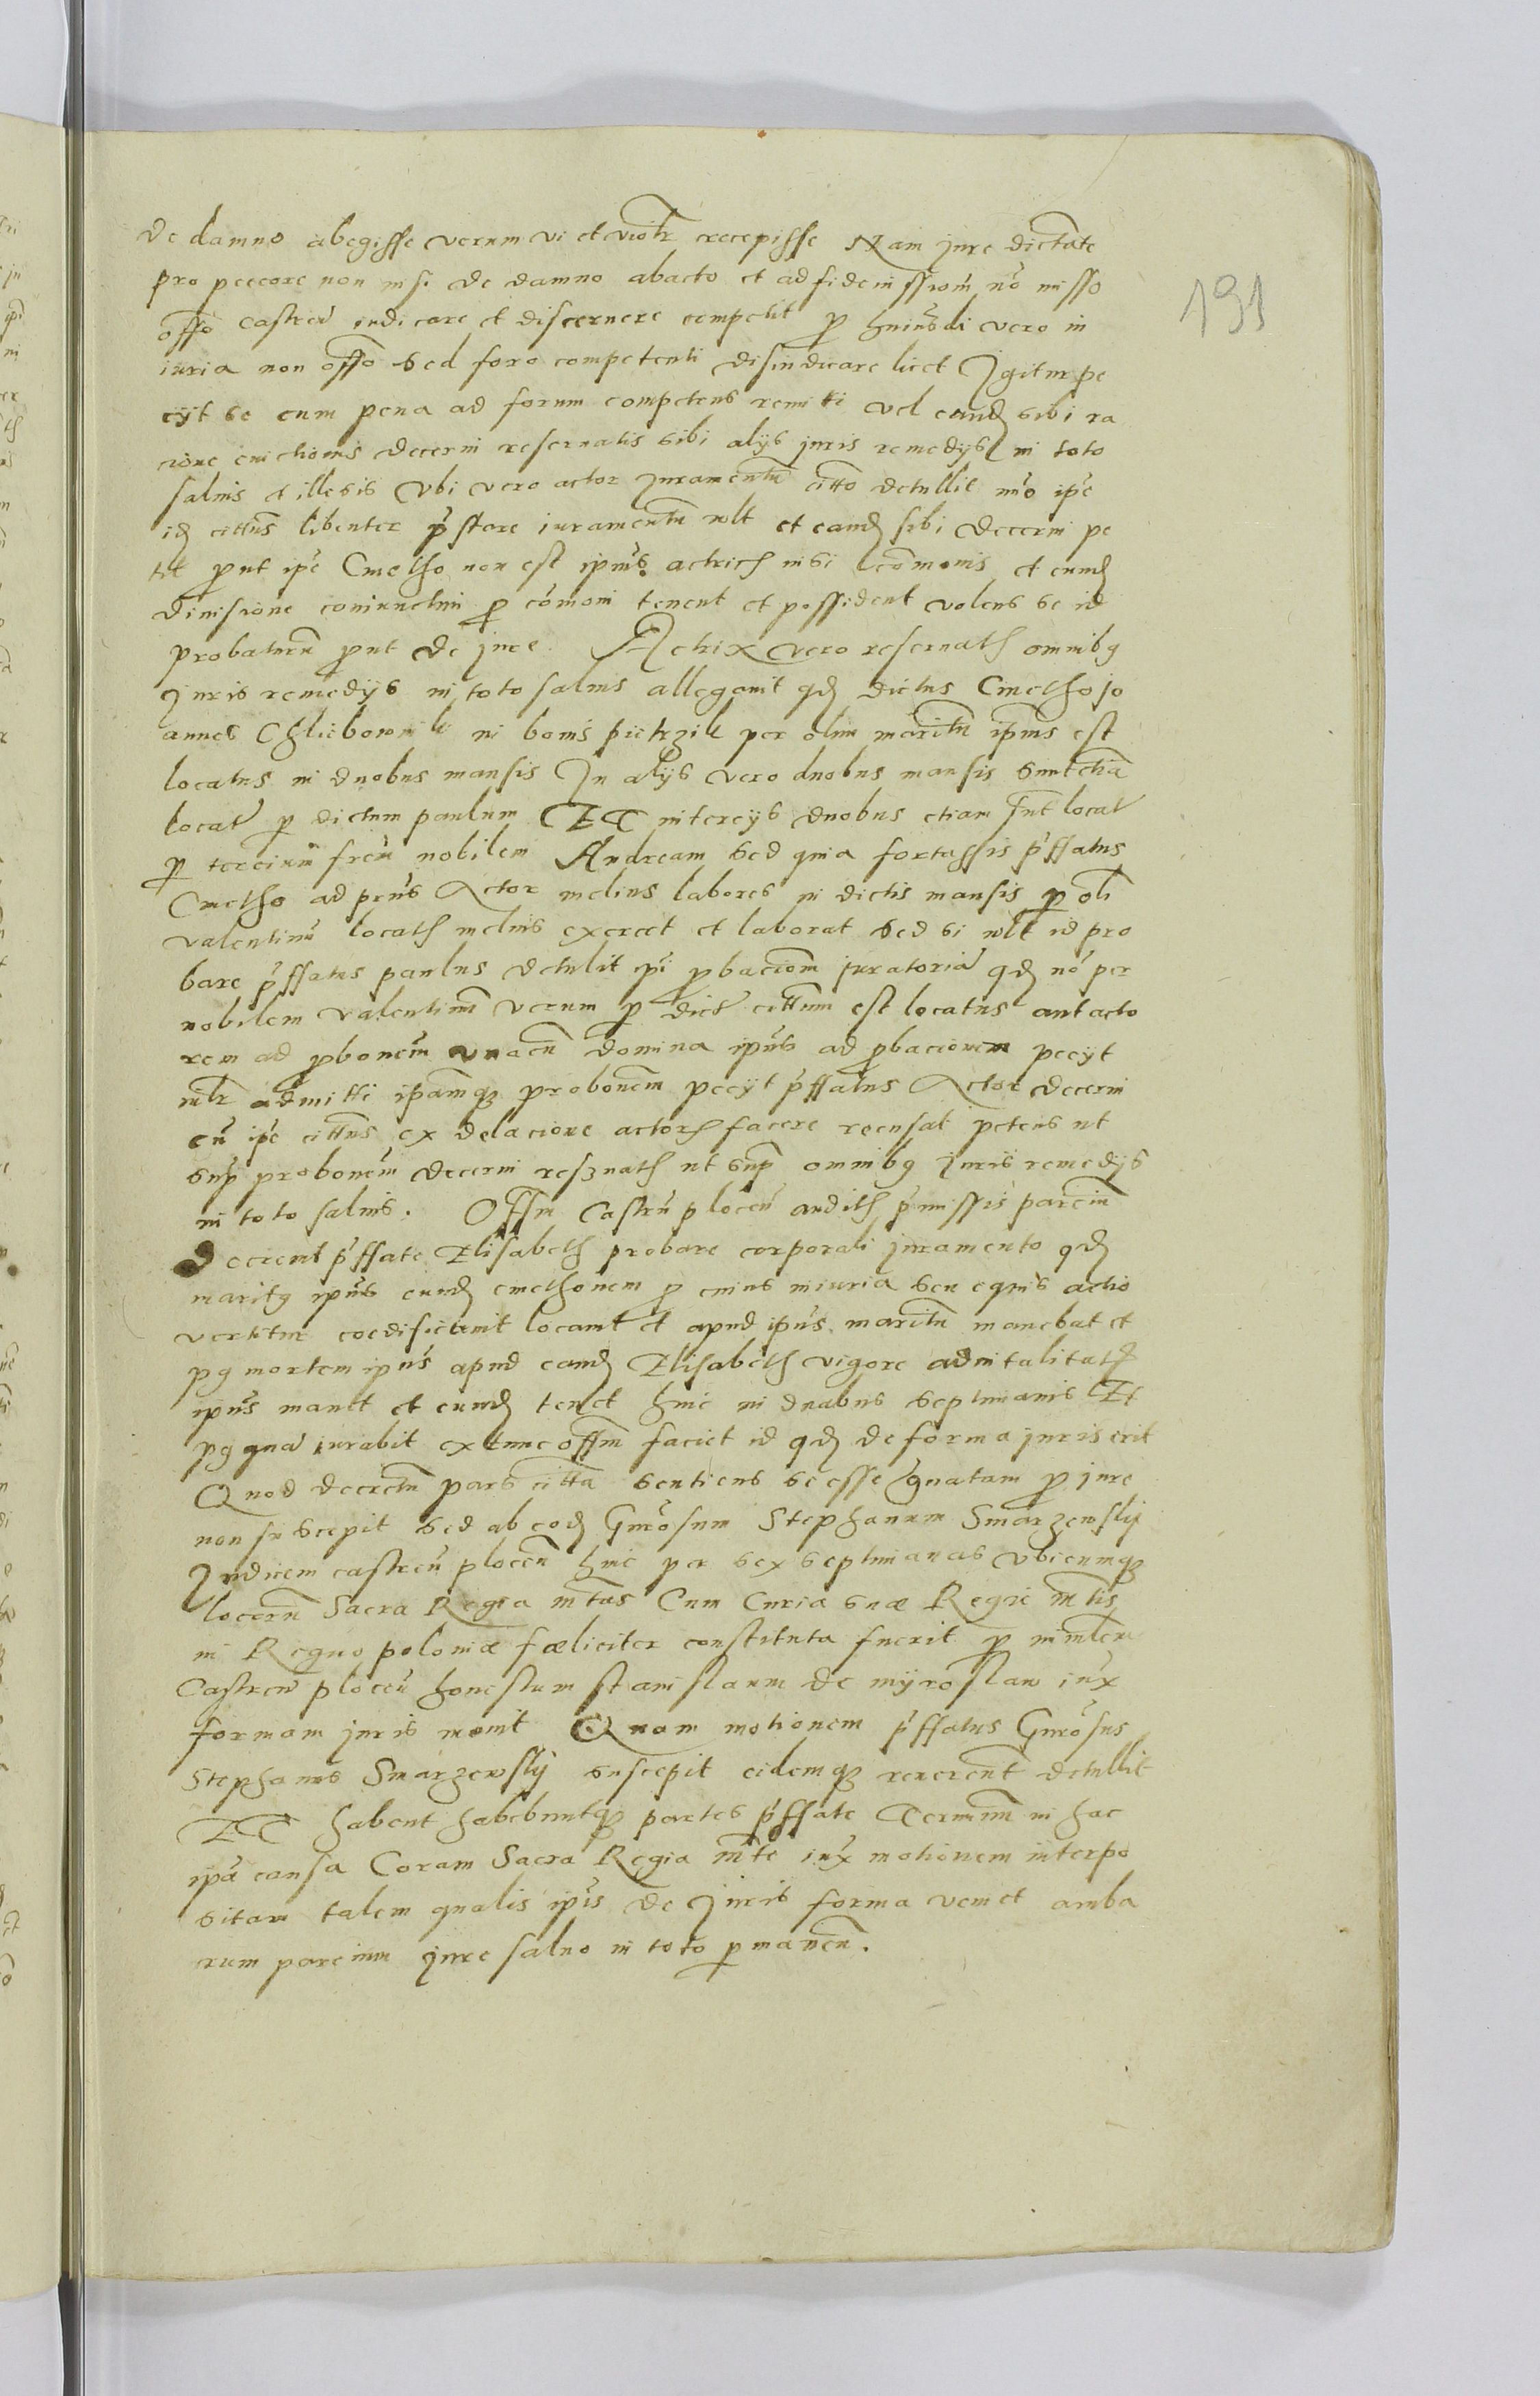 de damno abegisse verum vi et viołtr recepisse Nam jure dictante
pro peccore non nisi de damno abacto et ad fideiussiom̃ nõ misso
offo Castren̄ iudicare et discernere competit p huiusdi vero in
iuria non offo sed foro competenti disiudicare licet Igitur pe
cyt se cum pena ad forum competens remitti vel eand sibi ra
cione euictionis decerni reseruatis sibi alijs juris remedijs in toto
saluis et illesis Vbi vero actor Juramentū citto detullit ipe
id cittus libenter pstare iuramentū wlt et eand sibi decerni pe
tit put ipe Cmetho non est ipius actricis nisi comonis et eumd
diuisione coniunctim p comoni tenent et possident volens se id
probaturū put de jure. Actrix vero reseruatis omnibq
Juris remedijs in toto saluis allegauit qd dictus Cmetho jo
annes Chliebownik in bonis pietrzik per olim maritū ipius est
locatus in duobus mansis In alijs vero duobus mansis sunt etiā
locat p dictum paulum ET in tercijs duobus etiam sunt locat
p tercium freū nobilem Andream sed quia fortassis pffatus
Cmetho ad prns Actor melius labores in dictis mansis p oli
valentinū locatis melius exercet et laborat sed si wlt id pro
bare pffatus paulus detulit ipi pbaciom juratoria qd nō per
nobilem valentinū verum p dict cittum est locatus aut acto
rem ad pbonem vnacū domina ipius ad pbacionem pecyt
admitti ipamq probonem pecyt pffatus Actor decerni
cū ipe cittus ex delacione actoris facere recusat petens ut
sup probonem decerni reseruatis ut sup omnibq Juris remedijs
in toto saluis. Offm Castrn plocen auditis pmissis parcium
Decreuit pffate Elisabeth probare corporali juramento qd
maritq ipius eund cmethonem p cuius iniuria seu equis actio
vertitur coedificauit locauit et apud ipius maritū manebat et
pq mortem ipius apud eand Elisabeth vigore aduitalitatis
ipius manet et eumd tenet hinc in duabus septimanis Et
pq qua iurabit extunc offm faciet id qd de forma juris erit
Quod decretū pars citta sentiens se esse gratam p jure
non suscepit sed ab eod Gnrosum Stephanum Smarzewskij
Judicem castren plocen hinc per sex septimanas vbicumq
locorum Sacra Regia mtas Cum Curia suæ Regie mtis
in Regno poloniæ fæliciter constituta fuerit p ministem
Castren plocen honestum stanislaum de myroslaw iux
formam juris mouit Quam motionem pffatus Gnrosus
Stephanus Smarzewskij suscepit eidemq reuerent detullit
ET habent habebuntq partes pffate Terminū in hac
ipa causa Coram Sacra Regia mte iux motionem interpo
sitam talem qualis ipis de Juris forma venit amba
rum parcium jure saluo in toto pmanen.
191